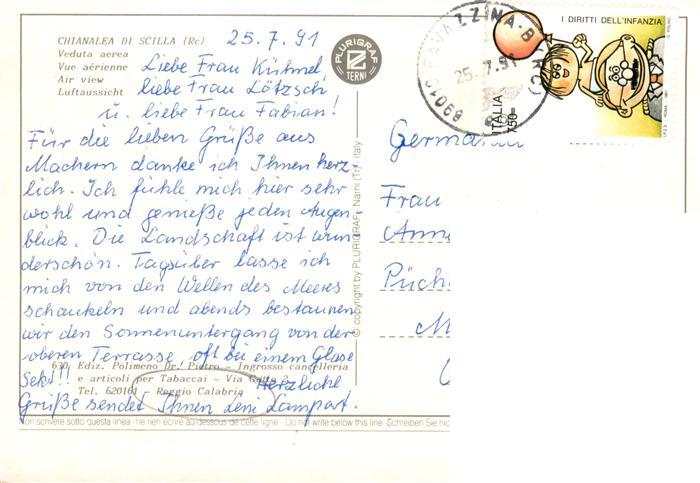 CHIANALEA DI SCILLA (Rc)
Veduta aerea
Vue aérienne
Air view
Luftaussicht
PLURIGRAF
TERNI
25.7.91
Liebe Frau Kühmel,
liebe Frau Lötzsch
u. liebe Frau Fabian!
Für die lieben Grüße aus
Machern danke ich Ihnen herz-
lich. Ich fühle mich hier sehr
wohl und genieße jeden Augen-
blick. Die Landschaft ist wun
derschön. Tagsüber lasse ich
mich von den Wellen des Meeres
schaukeln und abends bestaunen
wir den Sonnenuntergang von der
oberen Terrasse, oft bei einem Glase
Sekt!!! Herzliche
Grüße sendet Ihnen Leni Lampart.
630 Ediz. Polimeno Dr. Pietro - Ingrosso cancelleria
e articoli per Tabaccai - Via
Tel. 620161 - Reggio Calabria
Non scrivere sotto questa linea - ne rien écrire au-dessous de cette ligne - Do not write below this line - Schreiben Sie nic
© copyright by PLURIGRAF - Narni (Tr) - Italy
I DIRITTI DELL'INFANZIA
ITALIA
750
25.7.91
Germania
Frau
Anne
Püch
M